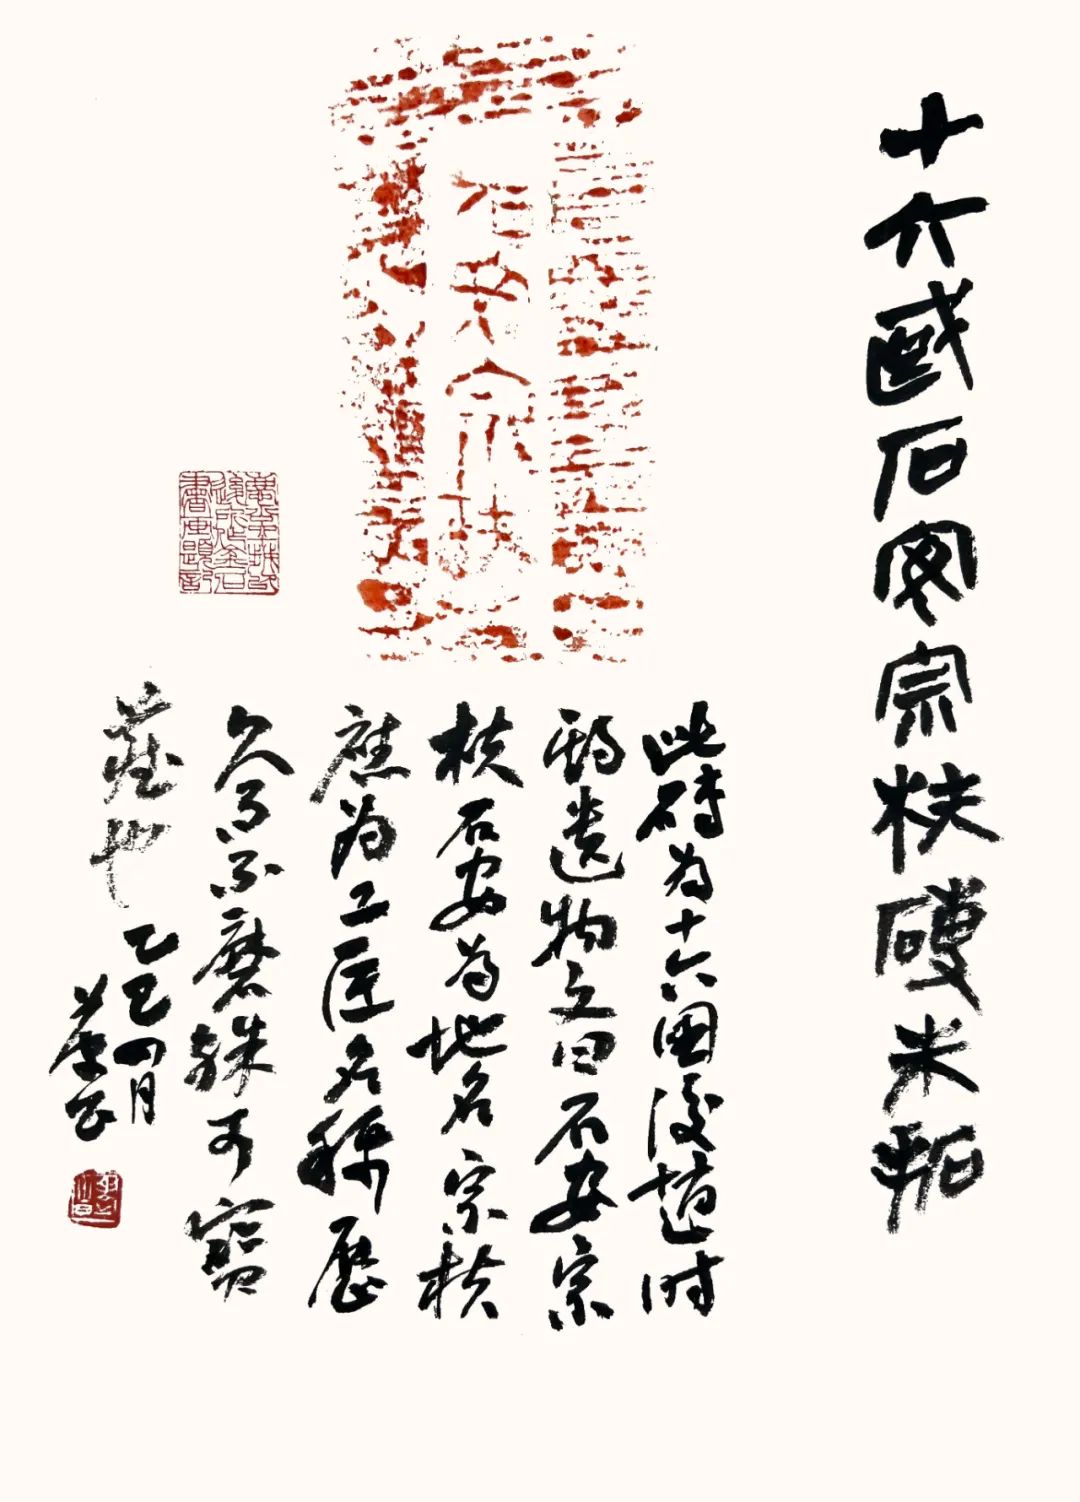 十六國石安宗枎磚朱拓
石安宗枎
此磚為十六國後趙时
期遺物文曰石安宗
枎石安為地名宗枎
應為工匠名稱歷
久而不磨殊可寶
藏也
乙巳四月